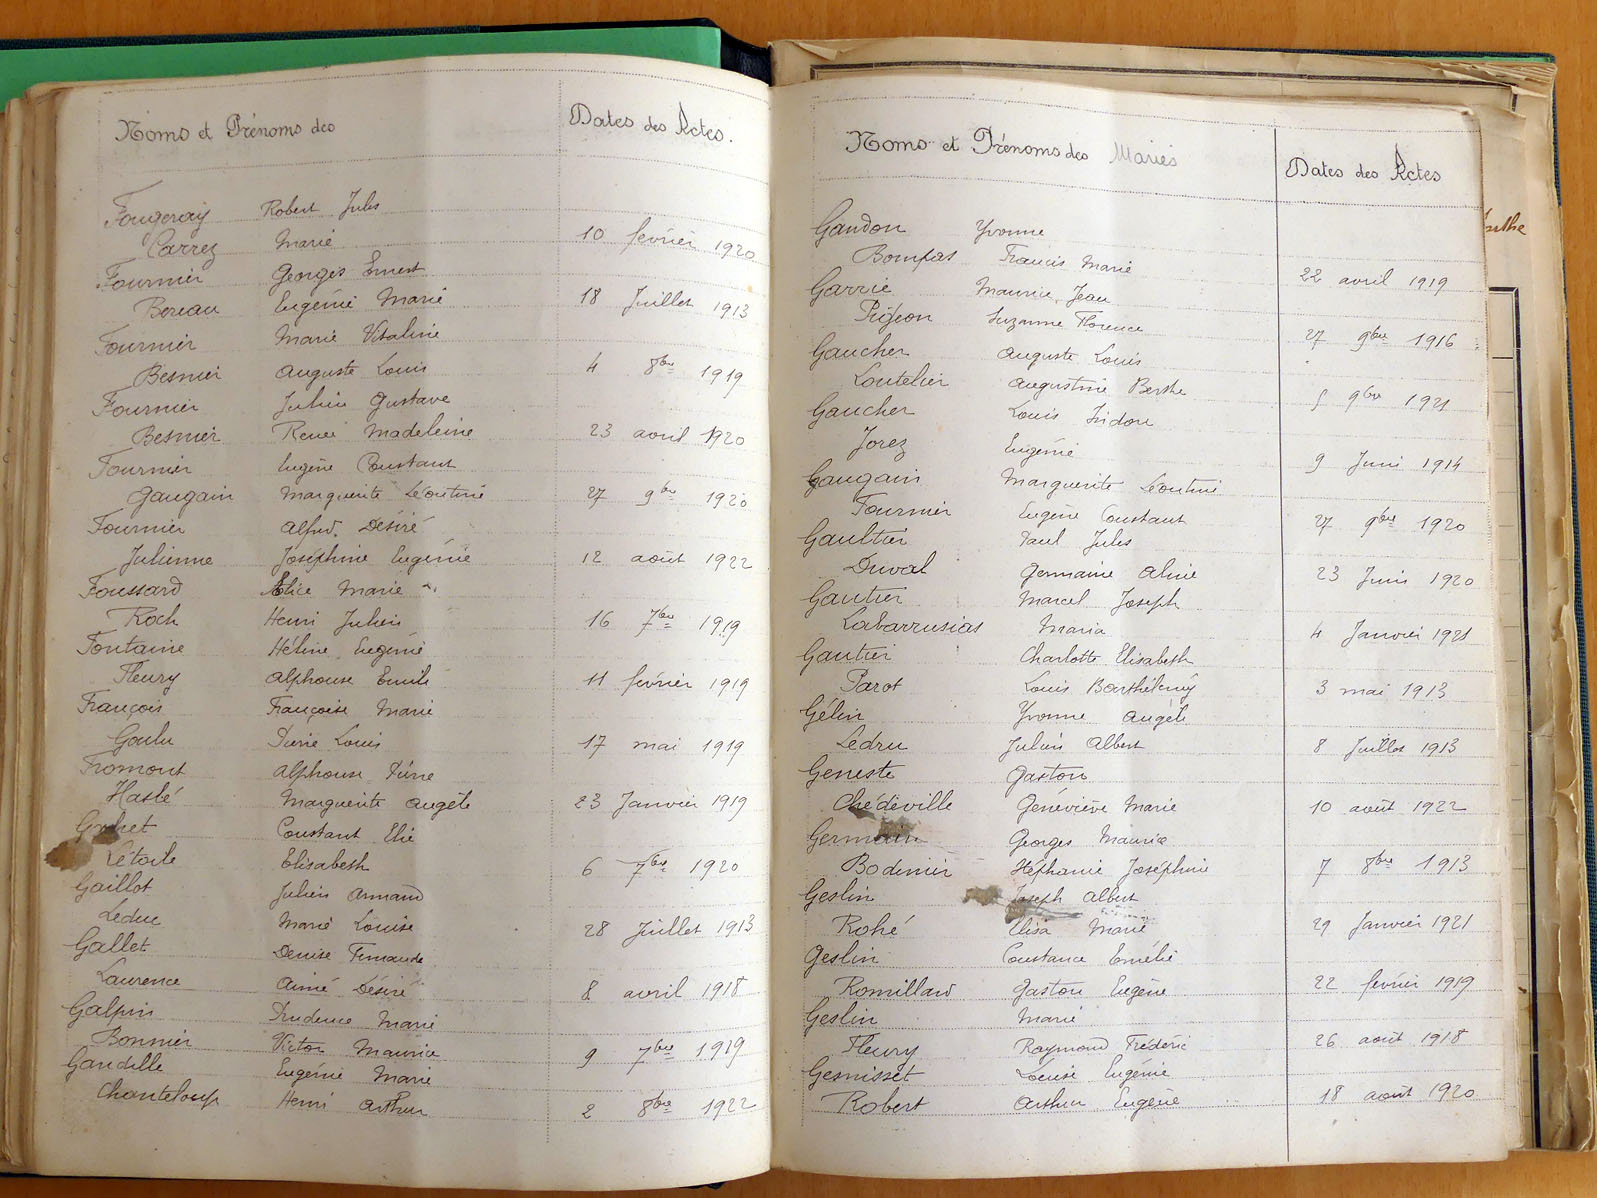 Noms et Prénoms des Dates des Actes.
Fougeray Robert Jules
Carrez Marie 10 février 1920
Fournier Georges Ernest
Bereau Eugénie Marie 18 Juillet 1913
Fournier Marie Vitaline
Besnier Auguste Louis 4 8bre 1919
Fournier Julien Gustave
Besnier Renée Madeleine 23 avril 1920
Fournier Eugène Constant
Gaugain Marguerite Léontine 27 9bre 1920
Fournier Alfred Désiré
Julienne Joséphine Eugénie 12 août 1922
Foussard Alice Marie
Roch Henri Julien 16 7bre 1919
Fontaine Hélène Eugénie
Fleury Alphonse Emile 11 février 1919
François Françoise Marie
Goulu Pierre Louis 17 mai 1919
Fromont Alphonse Pierre
Haslé Marguerite Angèle 23 Janvier 1919
Constant Elie
Létoile Elisabeth 6 7bre 1920
Gaillot Julien Armand
Leduc Marie Louise 28 Juillet 1913
Gallet Denise Fernande
Laurence Aimé Désiré 8 avril 1918
Galpin Prudence Marie
Bonnier Victor Maurice 9 7bre 1919
Gandille Eugénie Marie
Chanteloup Henri Arthur 2 8bre 1922
Noms et Prénoms des Mariés Dates des Actes
Gandon Yvonne
Bompas Francis Marie 22 avril 1919
Garrie Maurice Jean
Pigeon Suzanne Florence 27 9bre 1916
Gaucher Auguste Louis
Loutelier Augustine Berthe 5 9bre 1921
Gaucher Louis Isidore
Jorez Eugénie 9 Juin 1914
Gaugain Marguerite Léontine
Fournier Eugène Constant 27 9bre 1920
Gaultier Paul Jules
Duval Germaine Aline 23 Juin 1920
Gautier Marcel Joseph
Labarrusias Maria 4 Janvier 1921
Gautier Charlotte Elisabeth
Parot Louis Barthélemy 3 mai 1913
Gélin Yvonne Angèle
Ledru Julien Albert 8 Juillet 1913
Geneste Gaston
Chédeville Geneviève Marie 10 août 1922
Germain Georges Maurice
Bodinier Stéphanie Joséphine 7 8bre 1913
Geslin Joseph Albert
Rohé Elisa Marie 29 Janvier 1921
Geslin Constance Emélie
Romillard Gaston Eugène 22 février 1919
Geslin Marie
Fleury Raymond Frédéric 26 août 1918
Gesnisset Louise Eugénie
Robert Arthur Eugène 18 août 1920